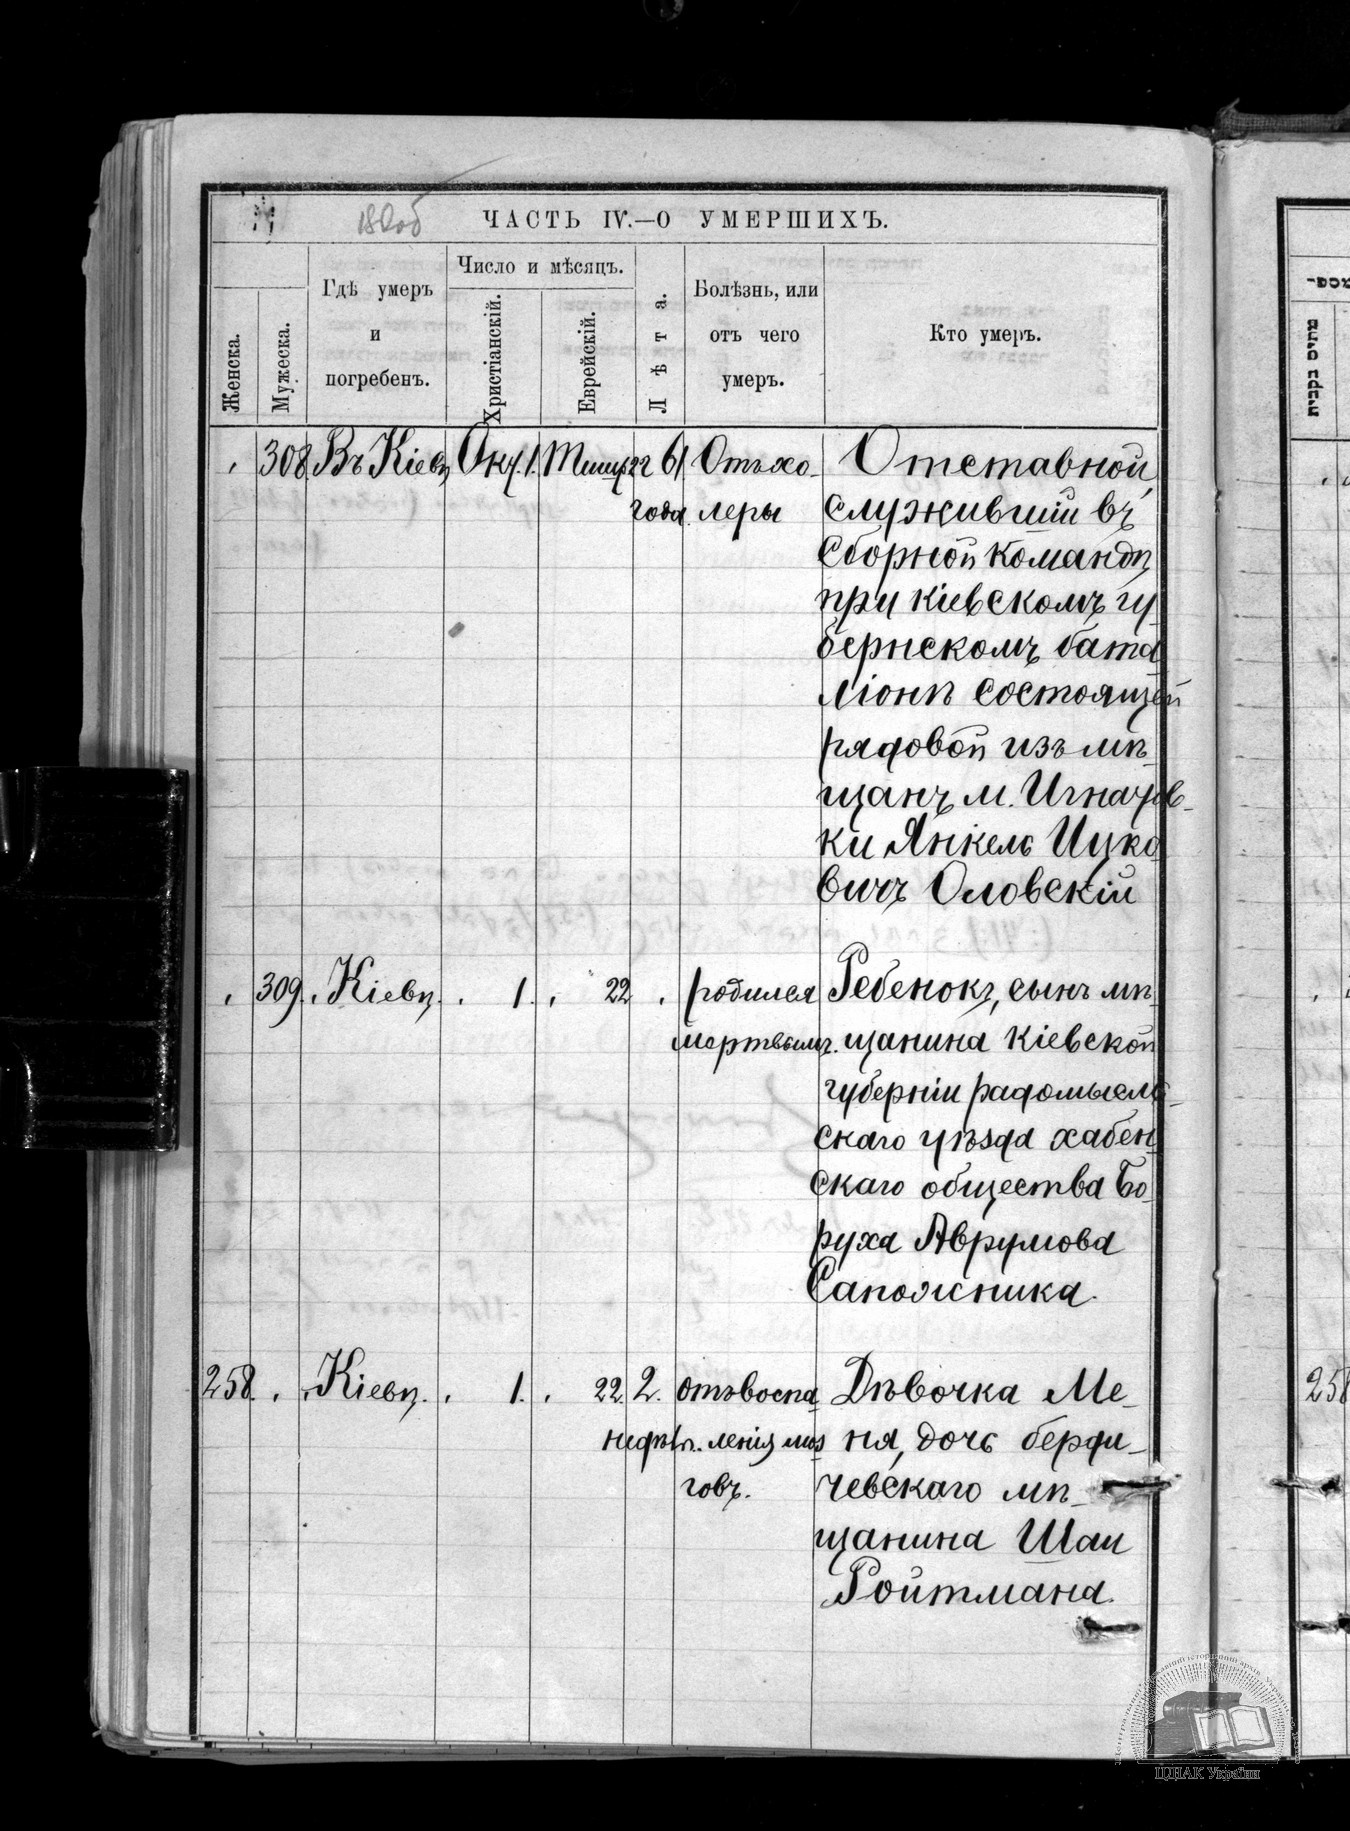 ЧАСТЬ IV.—О УМЕРШИХЪ.
Женска.
Мужеска.
Гдѣ умеръ
и
погребенъ.
Число и мѣсяцъ.
Христіанскій.
Еврейскій.
Лѣта.
Болѣзнь, или
отъ чего
умеръ.
Кто умеръ.
308. Въ Кіевѣ Окт. 1. Тишр 22 61 Отъ хо- Отставной
года леры служившій въ
Сборной командѣ
при кіевскомъ гу-
бернскомъ бата
ліонѣ состоящей
рядовой изъ мѣ-
щанъ м. Игнатов-
ки Янкель Ицко
вичъ Оловскій
309. Кіевѣ. 1. 22 родился Ребенокъ, сынъ мѣ-
мертвымъ. щанина Кіевской
губерніи радомысль-
скаго уѣзда хабен-
скаго общества Бо-
руха Аврумова
Сапожника.
258. Кіевѣ. 1. 22. 2. отъ воспа- Дѣвочка Ме-
недѣль. ленія моз ня, дочь берди-
говъ. чевскаго мѣ-
щанина Шаи
Ройтмана.
258
ЦДІАК України